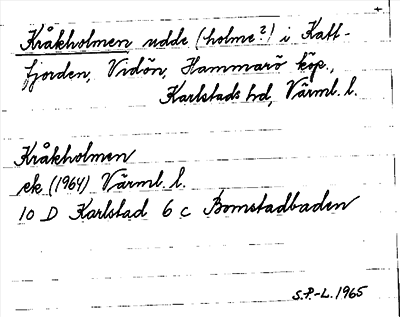 Kråkholmen udde (holme?) i Katt-
fjorden, Vidön, Hammarö köp.,
Karlstads hd, Värml. l.
Kråkholmen
ek (1964) Värml. l.
10 D Karlstad 6 c Bomstadbaden
S.P.-L. 1965